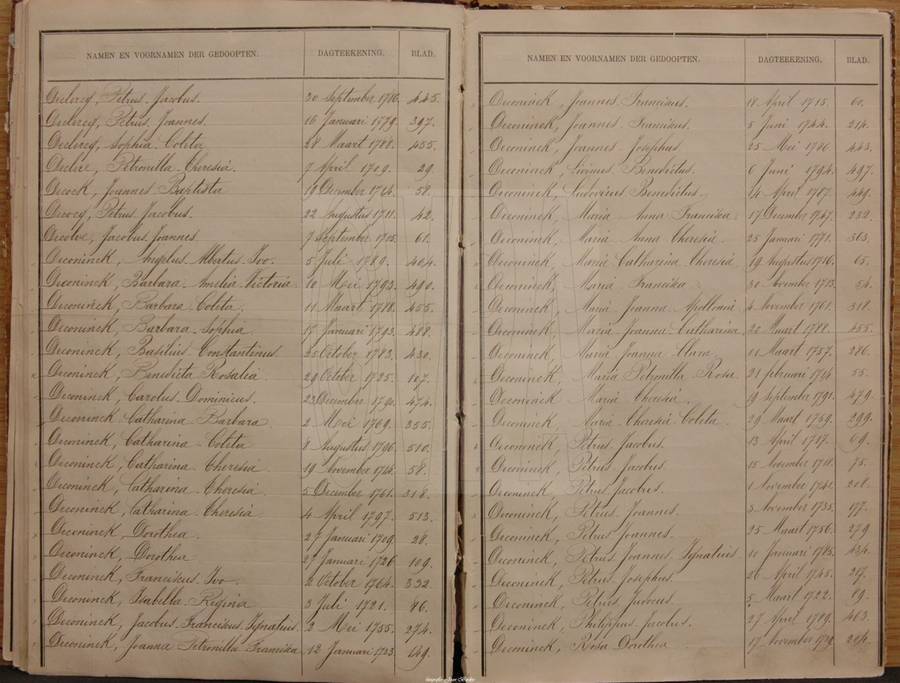 NAMEN EN VOORNAMEN DER GEDOOPTEN. DAGTEEKENING. BLAD.
Declercq, Petrus Jacobus. 20 September 1786. 445.
Declercq, Petrus Joannes. 16 Januari 1779. 397.
Declercq, Sophia Coleta 28 Maart 1788. 455.
Declerc, Petronilla Theresia 7 April 1709. 29
Decock, Joannes Baptista 58.
Petrus Jacobus. 22 Augustus 1711. 42.
Jacobus Joannes. 7 September 1715. 61.
Deconinck, Angelus Abatus Ivo. 5 Juli 1789. 464.
Deconinck, Barbara Amelia Victoria 10 Mei 1793. 490.
Deconinck, Barbara Coleta 11 Maart 1788. 455.
Deconinck, Barbara Sophia 17 Januari 1793. 488.
Deconinck, Basilius Constantinus 25 October 1783. 430.
Deconinck, Benedicta Rosalia 29 October 1725. 107.
Deconinck, Carolus Dominicus. 23 December 1790. 474.
Deconinck Catharina Barbara 2 Mei 1769. 355.
Deconinck, Catharina Coleta 8 Augustus 1796. 510.
Deconinck, Catharina Theresia 19 November 1714. 58.
Deconinck, Catharina Theresia 5 December 1761. 318.
Deconinck, Catharina Theresia 4 April 1797. 513.
Deconinck, Dorothea. 27 Januari 1709. 28.
Deconinck, Dorothea 27 Januari 1726 109.
Deconinck, Franciskus Ivo 2 October 1764. 332.
Deconinck, Isabella Regina 3 Juli 1721. 46.
Deconinck, Jacobus Franciskus Ignatius. 2 Mei 1755. 274.
Deconinck, Joanna Petronilla Franciska 12 Januari 1723 149.
NAMEN EN VOORNAMEN DER GEDOOPTEN. DAGTEEKENING. BLAD.
Deconinck, Joannes Franciskus. 18 April 1715. 60.
Deconinck, Joannes Franciskus. 5 Juni 1744. 214.
Deconinck, Joannes Josephus. 25 Mei 1786 443.
Deconinck, Livinus Benedictus. 6 Juni 1794. 497.
Deconinck, Ludovicus Benedictus. 14 April 1787. 449.
Deconinck, Maria Anna Franciska 17 December 1747. 232.
Deconinck, Maria Anna Theresia. 25 Januari 1771. 363.
Deconinck, Maria Catharina Theresia 19 Augustus 1716. 65.
Deconinck, Maria Franciska 30 November 1713. 54.
Deconinck, Maria Joanna Apollonia 4 November 1761. 318.
Deconinck, Maria Joanna Catharina 20 Maart 1788. 455.
Deconinck, Maria Joanna Clara 11 Maart 1757. 286.
Deconinck, Maria Petronilla Rosa 21 februari 1714 55.
Deconinck, Maria Theresia 19 September 1791. 479.
Deconinck, Maria Theresia Coleta. 29 Maart 1759. 299.
Deconinck, Petrus Jacobus. 13 April 1717. 69.
Deconinck, Petrus Jacobus. 15 November 1718. 75.
Deconinck, Petrus Jacobus. 1 November 1742. 208.
Deconinck, Petrus Joannes. 3 November 1735. 177.
Deconinck, Petrus Joannes. 25 Maart 1756. 279
Deconinck, Petrus Joannes Ignatius 10 Januari 1785. 434.
Deconinck, Petrus Josephus. 20 April 1745. 217.
Deconinck, Petrus Judocus. 5 Maart 1722. 89.
Deconinck, Philippus Jacobus. 27 April 1789. 463.
Deconinck, Rosa Dorothea 17 November